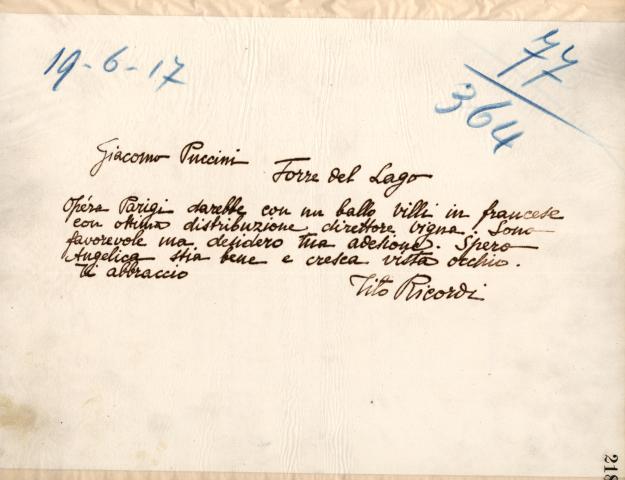 19-6-17
77
364
Giacomo Puccini Torre del Lago
Opéra Parigi darebbe con un ballo Villi in francese
con ottima distribuzione direttore Vigna. Sono
favorevole ma desidero tua adesione. Spero
Angelica stia bene e cresca vista occhio.
Ti abbraccio
Tito Ricordi
218